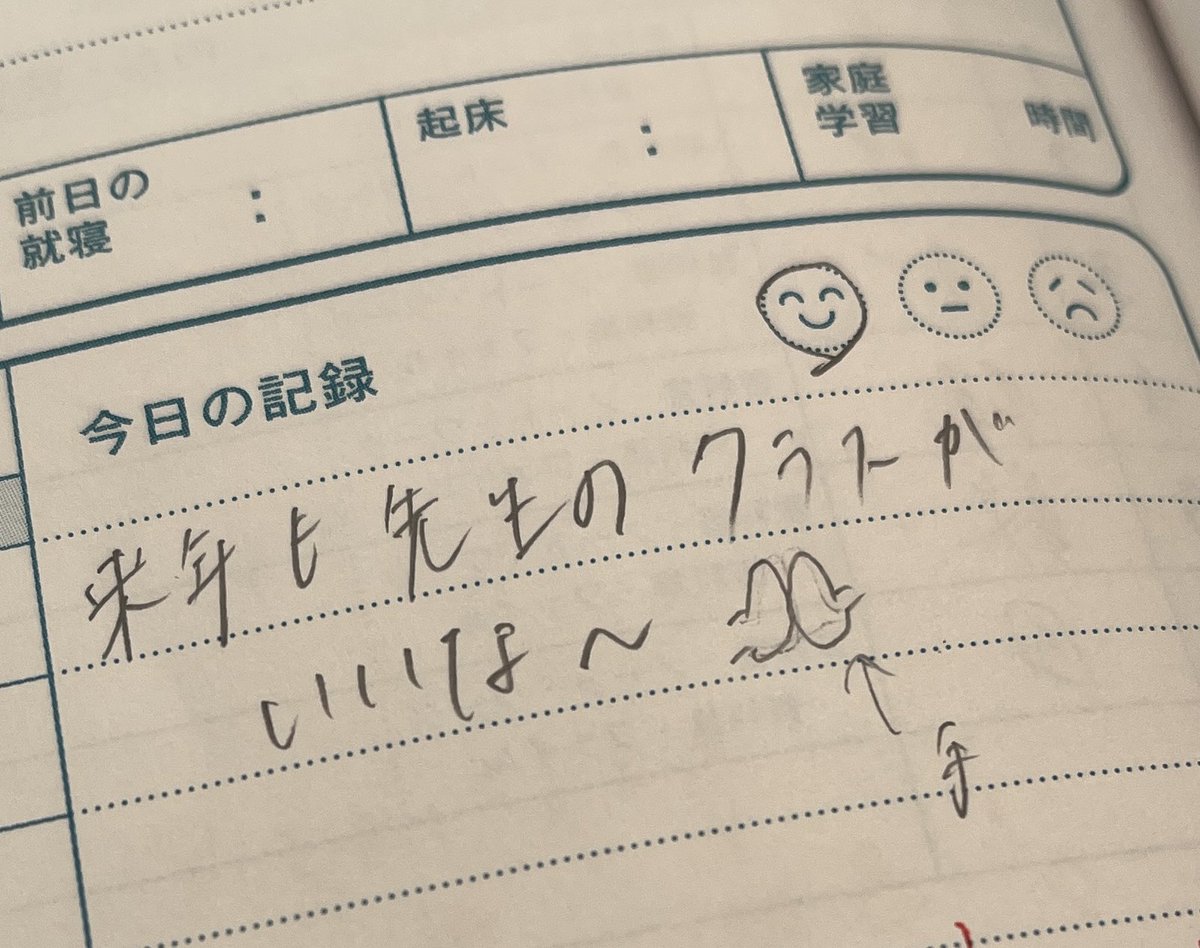 前日の
就寝
:
起床
:
家庭
学習
時間
今日の記録
来年も先生のクラスが
いいな〜
↑
手